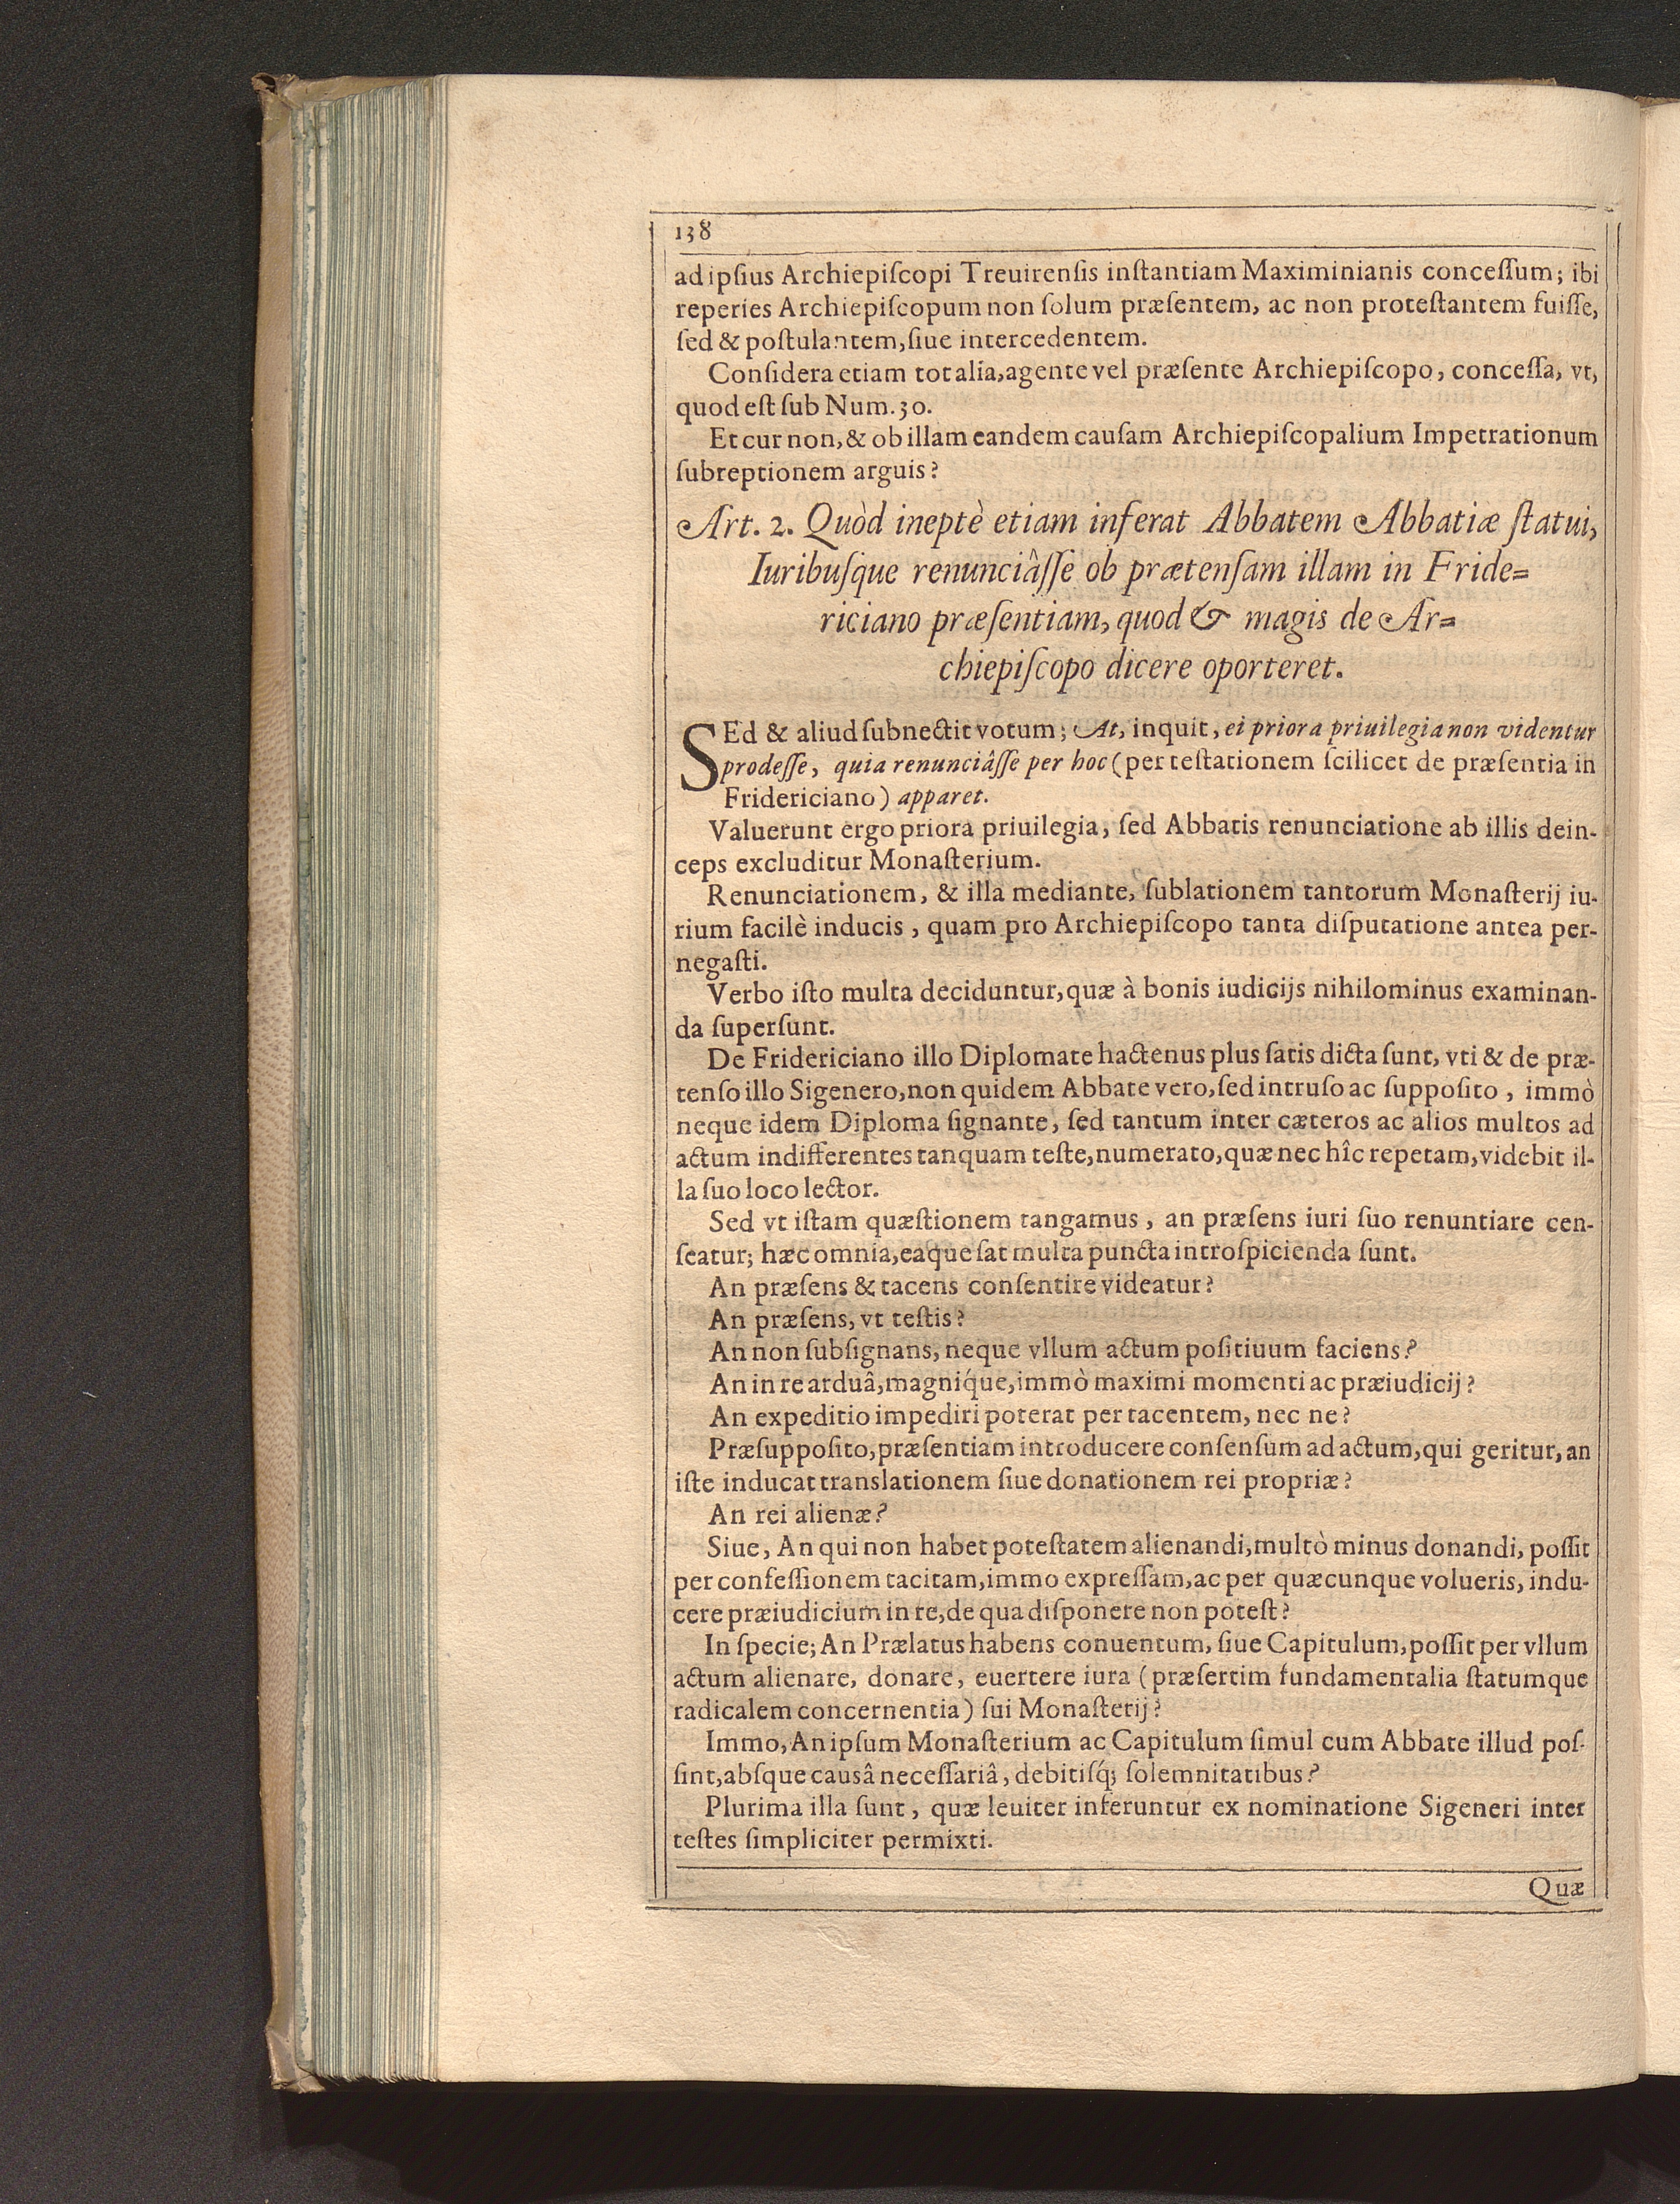 138
ad ipſius Archiepiſcopi Treuirenſis inſtantiam Maximinianis conceſſum; ibi
reperies Archiepiſcopum non ſolum præſentem, ac non proteſtantem fuiſſe,
ſed & poſtulantem, ſiue intercedentem.
Conſidera etiam tot alia, agente vel præſente Archiepiſcopo, conceſſa, vt,
quod eſt ſub Num. 30.
Et cur non, & ob illam eandem cauſam Archiepiſcopalium Impetrationum
ſubreptionem arguis?
Art. 2. Quòd ineptè etiam inferat Abbatem Abbatiæ ſtatui,
Iuribuſque renunciâſſe ob prætenſam illam in Fride-
riciano præſentiam, quod & magis de Ar-
chiepiſcopo dicere oporteret.
SEd & aliud ſubnectit votum; At, inquit, ei priora priuilegia non videntur
prodeſſe, quia renunciâſſe per hoc (per teſtationem ſcilicet de præſentia in
Fridericiano) apparet.
Valuerunt ergo priora priuilegia, ſed Abbatis renunciatione ab illis dein-
ceps excluditur Monaſterium.
Renunciationem, & illa mediante, ſublationem tantorum Monaſterij iu-
rium facilè inducis, quam pro Archiepiſcopo tanta diſputatione antea per-
negaſti.
Verbo iſto multa deciduntur, quæ à bonis iudicijs nihilominus examinan-
da ſuperſunt.
De Fridericiano illo Diplomate hactenus plus ſatis dicta ſunt, vti & de præ-
tenſo illo Sigenero, non quidem Abbate vero, ſed intruſo ac ſuppoſito, immò
neque idem Diploma ſignante, ſed tantum inter cæteros ac alios multos ad
actum indifferentes tanquam teſte, numerato, quæ nec hîc repetam, videbit il-
la ſuo loco lector.
Sed vt iſtam quæſtionem tangamus, an præſens iuri ſuo renuntiare cen-
ſeatur; hæc omnia, eaque ſat multa puncta introſpicienda ſunt.
An præſens & tacens conſentire videatur?
An præſens, vt teſtis?
An non ſubſignans, neque vllum actum poſitiuum faciens?
An in re arduâ, magníque, immò maximi momenti ac præiudicij?
An expeditio impediri poterat per tacentem, nec ne?
Præſuppoſito, præſentiam introducere conſenſum ad actum, qui geritur, an
iſte inducat translationem ſiue donationem rei propriæ?
An rei alienæ?
Siue, An qui non habet poteſtatem alienandi, multò minus donandi, poſſit
per confeſſionem tacitam, immo expreſſam, ac per quæcunque volueris, indu-
cere præiudicium in re, de qua diſponere non poteſt?
In ſpecie; An Prælatus habens conuentum, ſiue Capitulum, poſſit per vllum
actum alienare, donare, euertere iura (præſertim fundamentalia ſtatumque
radicalem concernentia) ſui Monaſterij?
Immo, An ipſum Monaſterium ac Capitulum ſimul cum Abbate illud poſ-
ſint, abſque causâ neceſſariâ, debitiſq́; ſolemnitatibus?
Plurima illa ſunt, quæ leuiter inferuntur ex nominatione Sigeneri inter
teſtes ſimpliciter permixti.
Quæ